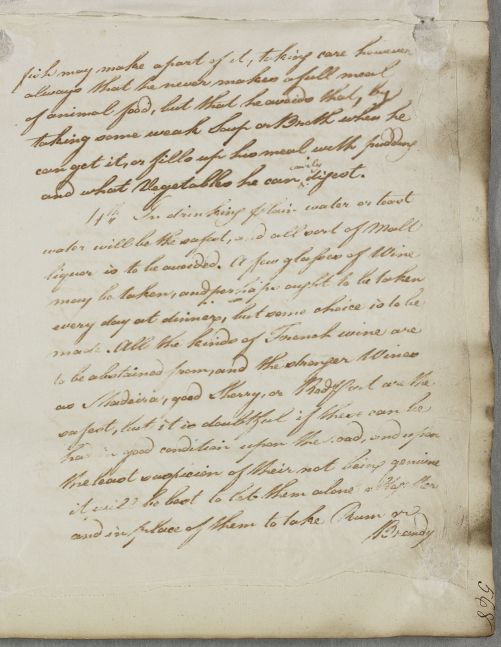 fish may make a part of it, taking care however
always that he never makes a full meal
of animal food, but that he avoids that, by
taking some weak Soup or Broth when he
can get it, or fills up his meal with pudding
and what Vegetables he can easily digest.
4th. In drinking plain water or toast
water will be the safest, and all sort of Malt
liquor is to be avoided. A few glasses of Wine
may be taken, and perhaps ought to be taken
every day at dinner, but some choice is to be
made. All the kinds of French wine are
to be abstained from, and the stronger Wines
as Madeira, good Sherry, or Red Port are the
safest, but it is doubtful if these can be
had in good condition upon the road, and upon
the least suspicion of their not being genuine
it will be best to let them alone
and in place of them to take Rum or
Brandy
568